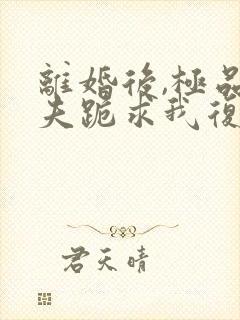 離婚後,極品
夫跪求我復
君天晴